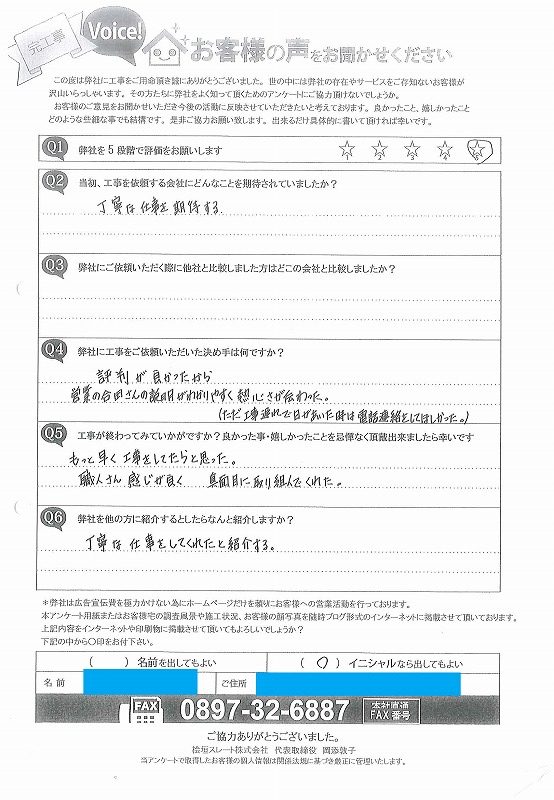 完工事
Voice!
お客様の声をお聞かせください
この度は弊社に工事をご用命頂き誠にありがとうございました。世の中には弊社の存在やサービスをご存知ないお客様が
沢山いらっしゃいます。その方たちに弊社をよく知って頂くためのアンケートにご協力頂けないでしょうか。
お客様のご意見をお聞かせいただき今後の活動に反映させていただきたいと考えております。良かったこと、嬉しかったこと
どのような些細な事でも結構です。是非ご協力お願い致します。出来るだけ具体的に書いて頂ければ幸いです。
Q1 弊社を5段階で評価をお願いします
1 2 3 4 5
Q2 当初、工事を依頼する会社にどんなことを期待されていましたか？
丁寧な仕事を期待する
Q3 弊社にご依頼いただく際に他社と比較しました方はどこの会社と比較しましたか？
Q4 弊社に工事をご依頼いただいた決め手は何ですか？
評判が良かったから
営業の合田さんの説明がわかりやすく熱心さが伝わった。
(ただ工事遅れで日が空いた時は電話連絡としてほしかった。)
Q5 工事が終わってみていかがですか？良かった事・嬉しかったことを忌憚なく頂戴出来ましたら幸いです
もっと早く工事をしてたらと思った。
職人さん感じが良く 真面目に取り組んでくれた。
Q6 弊社を他の方に紹介するとしたらなんと紹介しますか？
丁寧な仕事をしてくれたと紹介する。
＊弊社は広告宣伝費を極力かけない為にホームページだけを頼りにお客様への営業活動を行っております。
本アンケート用紙またはお客様宅の調査風景や施工状況、お客様の顔写真を随時ブログ形式のインターネットに掲載させて頂いております。
上記内容をインターネットや印刷物に掲載させて頂いてもよろしいでしょうか？
下記の中から〇印をお付下さい。
( ) 名前を出してもよい
(〇) イニシャルなら出してもよい
名前
ご住所
FAX 0897-32-6887 本社直通 FAX番号
ご協力ありがとうございました。
桧垣スレート株式会社 代表取締役 岡添敦子
当アンケートで取得したお客様の個人情報は関係法規に基づき厳正に管理いたします。